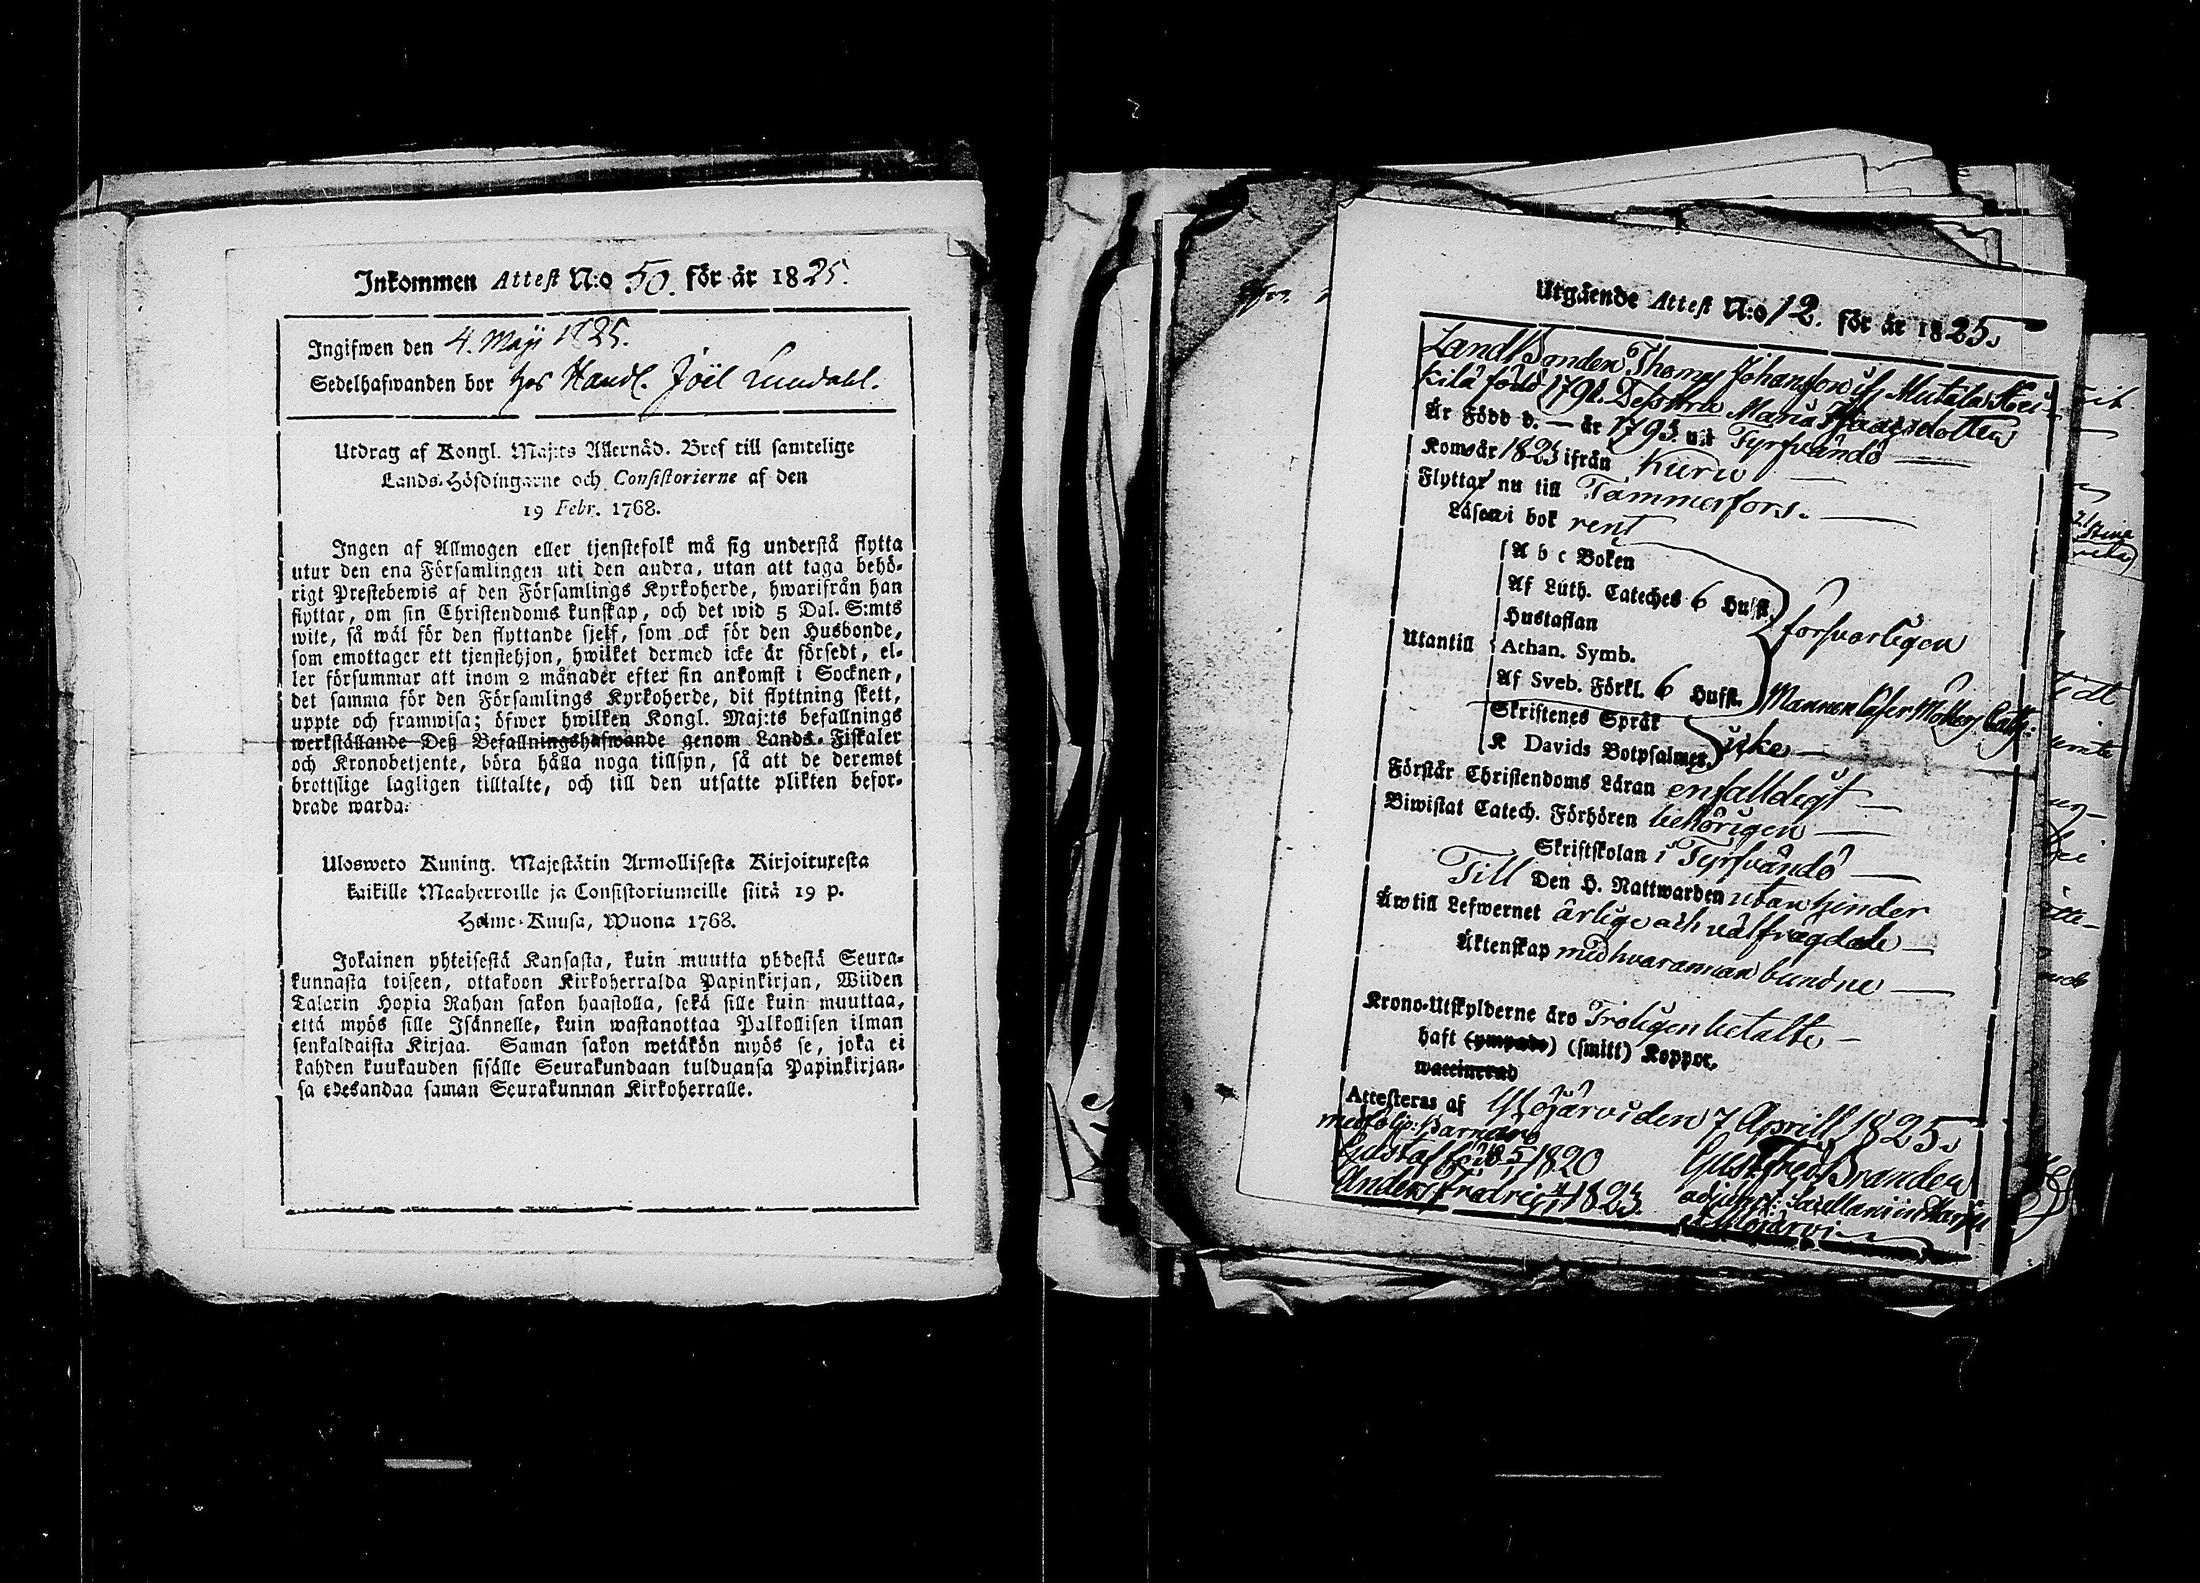 Inkommen Attest N:o 50. för år 1825.
Ingifwen den 4. Maji 1825.
Sedelhafwanden bor hos Handl. Joël Lundahl.
Utdrag af Kongl. Maj:ts Allernåd. Bref till samtelige
Lands-Höfdingarne och Consistorierne af den
19 Febr. 1768.
Ingen af Allmogen eller tjenstefolk må sig understå flytta
utur den ena Församlingen uti den andra, utan att taga behö-
rigt Prestebewis af den Församlings Kyrkoherde, hwarifrån han
flyttar, om sin Christendoms kunskap, och det wid 5 Dal. S:mts
wite, så wäl för den flyttande sjelf, som ock för den Husbonde,
som emottager ett tjenstehjon, hwilket dermed icke är försedt, el-
ler försummar att inom 2 månader efter sin ankomst i Socknen,
det samma för den Församlings Kyrkoherde, dit flyttning skett,
uppte och framwisa; öfwer hwilken Kongl. Maj:ts befallnings
werkställande Deß Befallningshafwande genom Lands-Fiskaler
och Kronobetjente, böra hålla noga tillsyn, så att de deremot
brottslige lagligen tilltalte, och till den utsatte plikten befor-
drade warda.
Ulosweto Kuning. Majestätin Armollisesta Kirjoituxesta
kaikille Maaherroille ja Consistoriumeille siitä 19 p.
Helme-Kuusa, Wuona 1768.
Jokainen yhteisestä Kansasta, kuin muutta yhdestä Seura-
kunnasta toiseen, ottakoon Kirkoherralda Papinkirjan, Wiiden
Talarin Hopia Rahan sakon haastolla, sekä sille kuin muuttaa,
että myös sille Isännelle, kuin wastanottaa Palkollisen ilman
senkaldaista Kirjaa. Saman sakon wetäkön myös se, joka ei
kahden kuukauden sisälle Seurakundaan tulduansa Papinkirjan-
sa edesandaa saman Seurakunnan Kirkoherralle.
Utgående Attest N:o 12. för år 1825.
LandtBonden Thomas Johansson ifr Mutala Kei-
kilä född 1791. Dess hru Maria
Är Född d. — år 1793. uti Tyrfvändö
Kom år 1823 ifrån Kuru
Flyttar nu till Tammerfors.
Läsen i bok rent
A b c Boken
Af Luth. Cateches 6 Hufst.
Hustaflan försvarligen
Utantill Athan. Symb.
Af Sveb. Förkl. 6 Hufst. Mannen läser Möllers Catk:
Skriftenes Språk
K Davids Botpsalmer. icke
Förstår Christendoms Läran enfalldigt
Biwistat Catech. Förhören behörigen
Skriftskolan i Tyrfvändö
Till Den H. Nattwarden utan hinder
Äro till Lefwernet ärlige och välfrägdade
Äktenskap med hvarannan bundne
Krono-Utskylderne äro Troligen betalte
haft (ympade) (smitt) Koppor,
waccinerad
Attesteras af Ylöjärvi den 7 Aprill 1825.
medfölja: Barnen
Gustaf född 1820 Gust Fred Brander
Anders Fredric 1823. adjunct: Sacellani in
Ylöjärvi